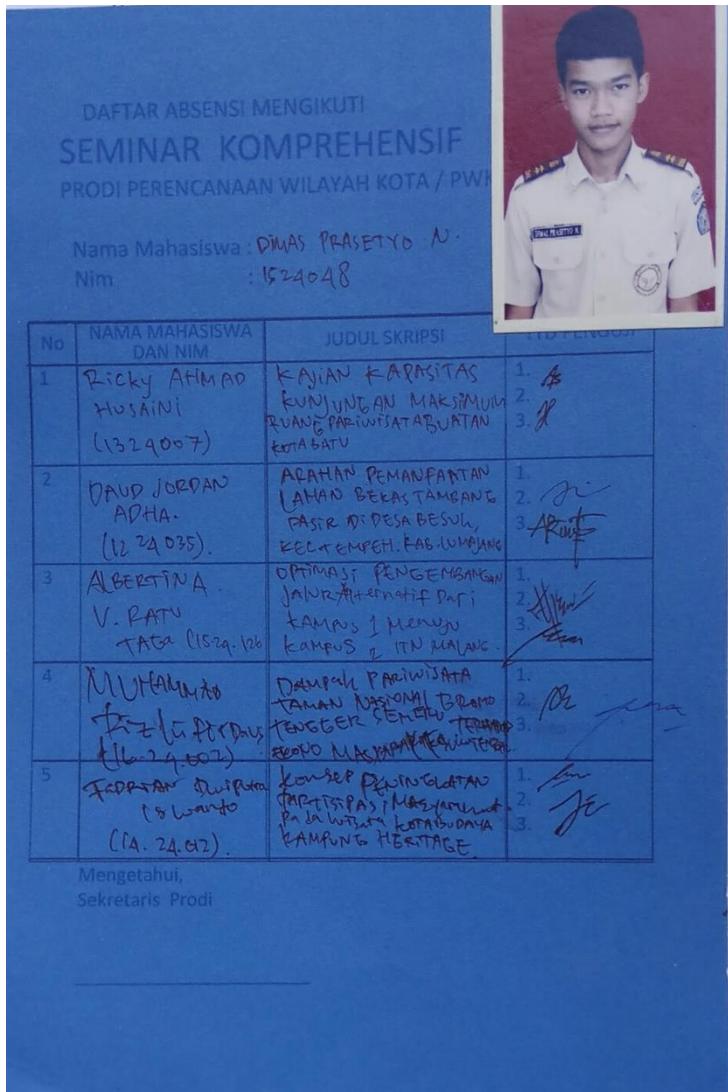 DAFTAR ABSENSI MENGIKUTI
SEMINAR KOMPREHENSIF
PRODI PERENCANAAN WILAYAH KOTA / PWK
Nama Mahasiswa : DIMAS PRASETYO N.
Nim : 1524048
DIMAS PRASETYO N.
No NAMA MAHASISWA DAN NIM JUDUL SKRIPSI TTD PENGUJI
1 RICKY AHMAD HUSAINI (1324007)
KAJIAN KAPASITAS
KUNJUNGAN MAKSIMUM
RUANG PARIWISATA BUATAN
KOTA BATU
1.
2.
3.
2 DAUD JORDAN ADHA. (12 24 035).
ARAHAN PEMANFAATAN
LAHAN BEKAS TAMBANG
PASIR DI DESA BESUK,
KEC. TEMPEH. KAB. LUMAJANG
1.
2.
3.
3 ALBERTINA V. RATU TAGA (15.24.126
OPTIMASI PENGEMBANGAN
JALUR Alternatif Dari
KAMPUS 1 Menuju
KAMPUS 2 ITN MALANG.
1.
2.
3.
4 MUHAMMAD (16.24.002)
DAMPAK PARIWISATA
TAMAN NASIONAL BROMO
TENGGER SEMERU TERHADAP
1.
2.
3.
5 Dwiputra Iswanto (14.24.012).
KONSEP PENINGKATAN
PARTISIPASI MASYARAKAT
PADA WISATA KOTA BUDAYA
KAMPUNG HERITAGE.
1.
2.
3.
Mengetahui,
Sekretaris Prodi